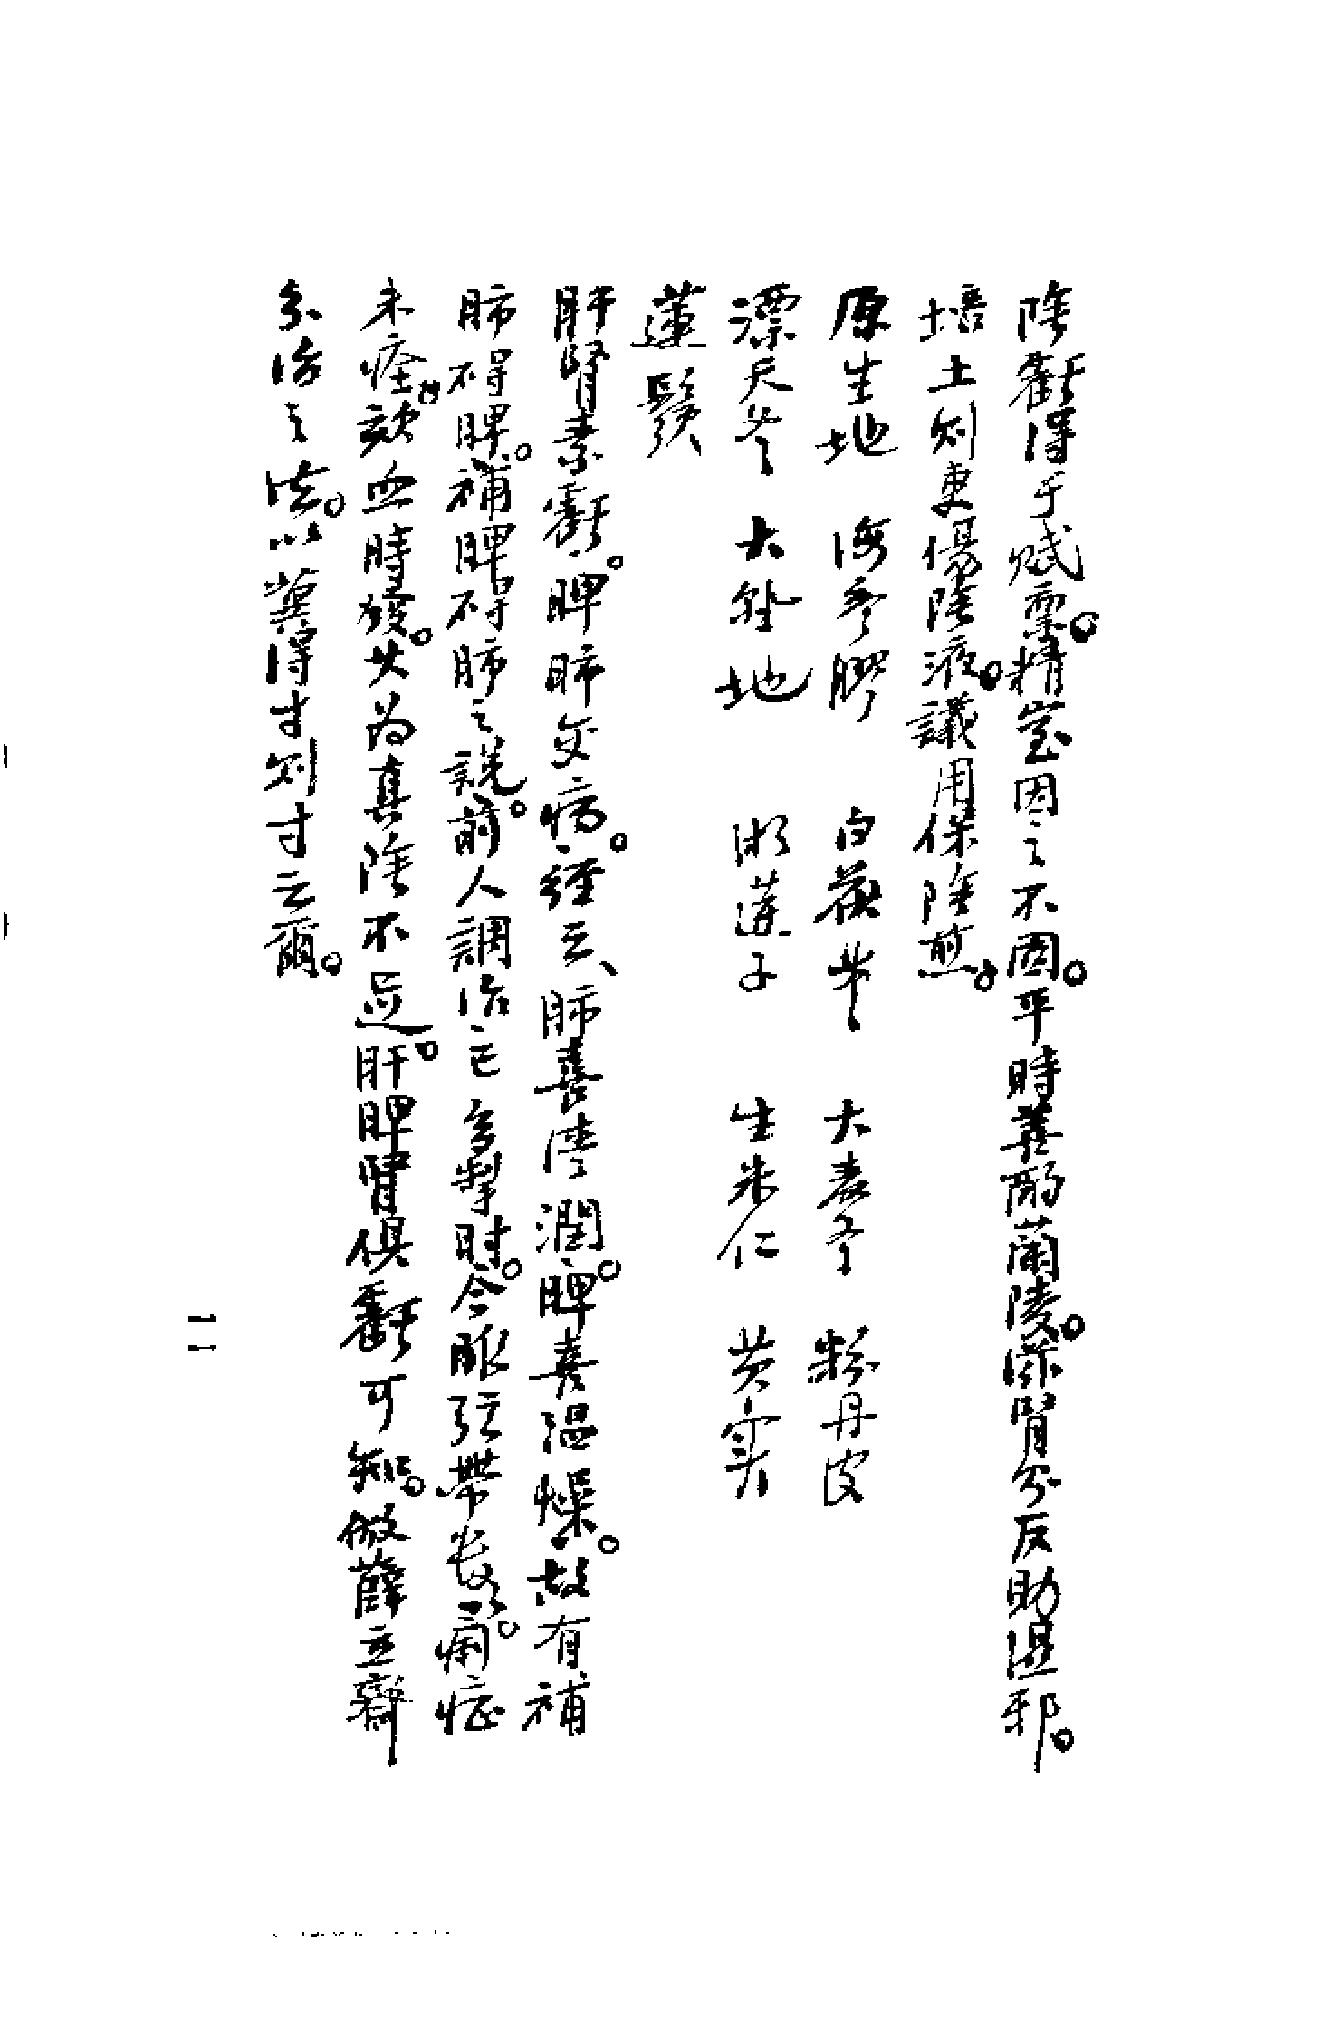 陰虧得乎賦稟。精室因之不固。平時善酌蘭陵。滋腎分反助濕邪。
培土則更傷陰液。議用保陰煎。
原生地 海參膠 白茯苓 大麥冬 粉丹皮
漂天冬 大熟地 湘蓮子 生米仁 芡實
蓮鬚
肝腎素虧。脾肺交病。經云、肺喜清潤。脾喜溫燥。故有補
肺碍脾。補脾碍肺之說。前人調治已多掣肘。今脈弦帶長。痢症
未痊。欬血時發。其為真陰不足。肝脾腎俱虧可知。倣薛立齋
分治之法。以冀得寸則寸云爾。
一一